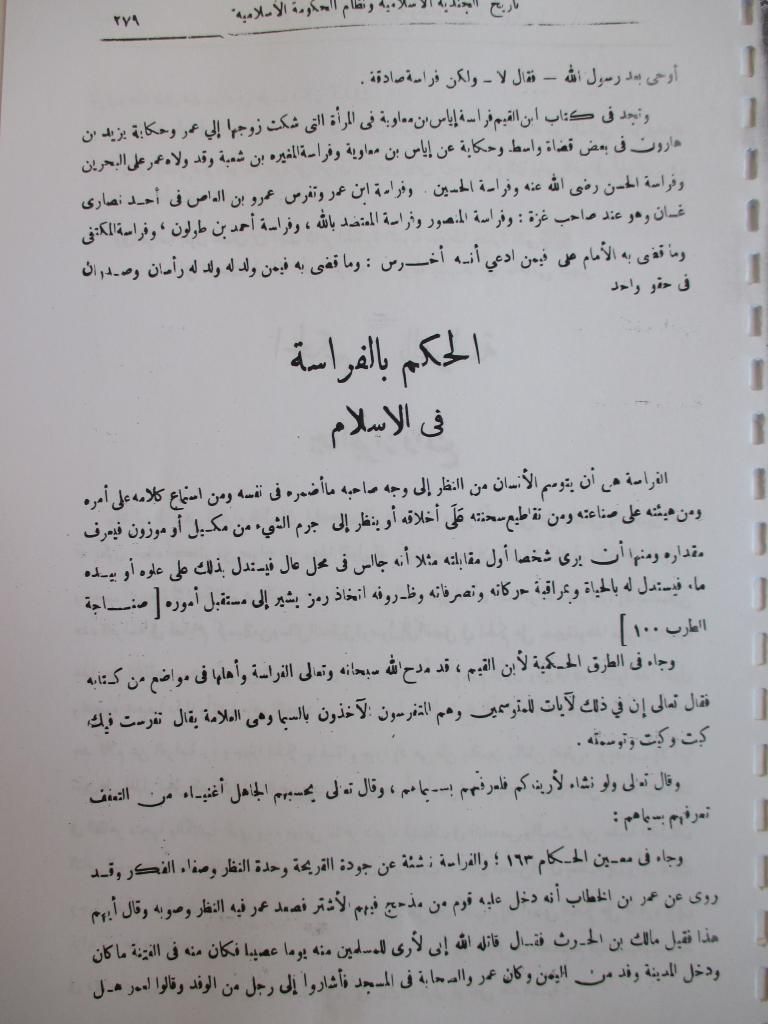 تاريخ الجندية الاسلامية ونظام الحكومة الأسلامية
٢٧٩
أوحى بعد رسول الله — فقال لا — ولكن فراسة صادقة .
وتجد فى كتاب ابن القيم فراسة إياس بن معاوية فى المرأة التى شكت زوجها إلي عمر وحكاية يزيد بن
هارون فى بعض قضاة واسط وحكاية عن إياس بن معاوية وفراسة المغيره بن شعبة وقد ولاه عمر على البحرين
وفراسة الحسن رضى الله عنه وفراسة الحسين . وفراسة ابن عمر وتفرس عمرو بن العاص فى أحد نصارى
غسان وهو عند صاحب غزة : وفراسة المنصور وفراسة المعتضد بالله ، وفراسة أحمد بن طولون ، وفراسة المكتفى
وما قضى به الأمام على فيمن ادعي أنه أخرس : وما قضى به فيمن ولد له ولد له رأسان وصدران
فى حقو واحد
الحكم بالفراسة
فى الاسلام
الفراسة هى أن يتوسم الأنسان من النظر إلى وجه صاحبه ماأضمره فى نفسه ومن استماع كلامه على أمره
ومن هيئته على صناعته ومن تقاطيع سحنته على أخلاقه أو ينظر إلى جرم الشيء من مكيل أو موزون فيعرف
مقداره ومنها أن يرى شخصا أول مقابلته مثلا أنه جالس فى محل عال فيستدل بذلك على علوه أو بيده
ماء فيستدل له بالحياة وبمراقبة حركاته وتصرفاته وظروفه اتخاذ رمز يشير إلى مستقبل أموره [ صناجة
الطرب ١٠٠ ]
وجاء فى الطرق الحكمية لأبن القيم ، قد مدح الله سبحانه وتعالى الفراسة وأهلها فى مواضع من كتابه
فقال تعالى إن في ذلك لآيات للمتوسمين وهم المتفرسون الآخذون بالسيما وهى العلامة يقال تفرست فيك
كيت وكيت وتوسمته .
وقال تعالى ولو نشاء لأريناكم فلعرفتهم بسيماهم ، وقال تعالى يحسبهم الجاهل أغنياء من التعفف
تعرفهم بسيماهم :
وجاء فى معين الحكام ١٦٣ ؛ والفراسة ناشئة عن جودة القريحة وحدة النظر وصفاء الفكر وقد
روى عن عمر بن الخطاب أنه دخل عليه قوم من مذحج فيهم الأشتر فصعد عمر فيه النظر وصوبه وقال أيهم
هذا فقيل مالك بن الحرث فقال قاتله الله إنى لأرى للمسلمين منه يوما عصيبا فكان منه فى الفتنة ماكان
ودخل المدينة وفد من اليمن وكان عمر والصحابة فى المسجد فأشاروا إلى رجل من الوفد وقالوا لعمر هل